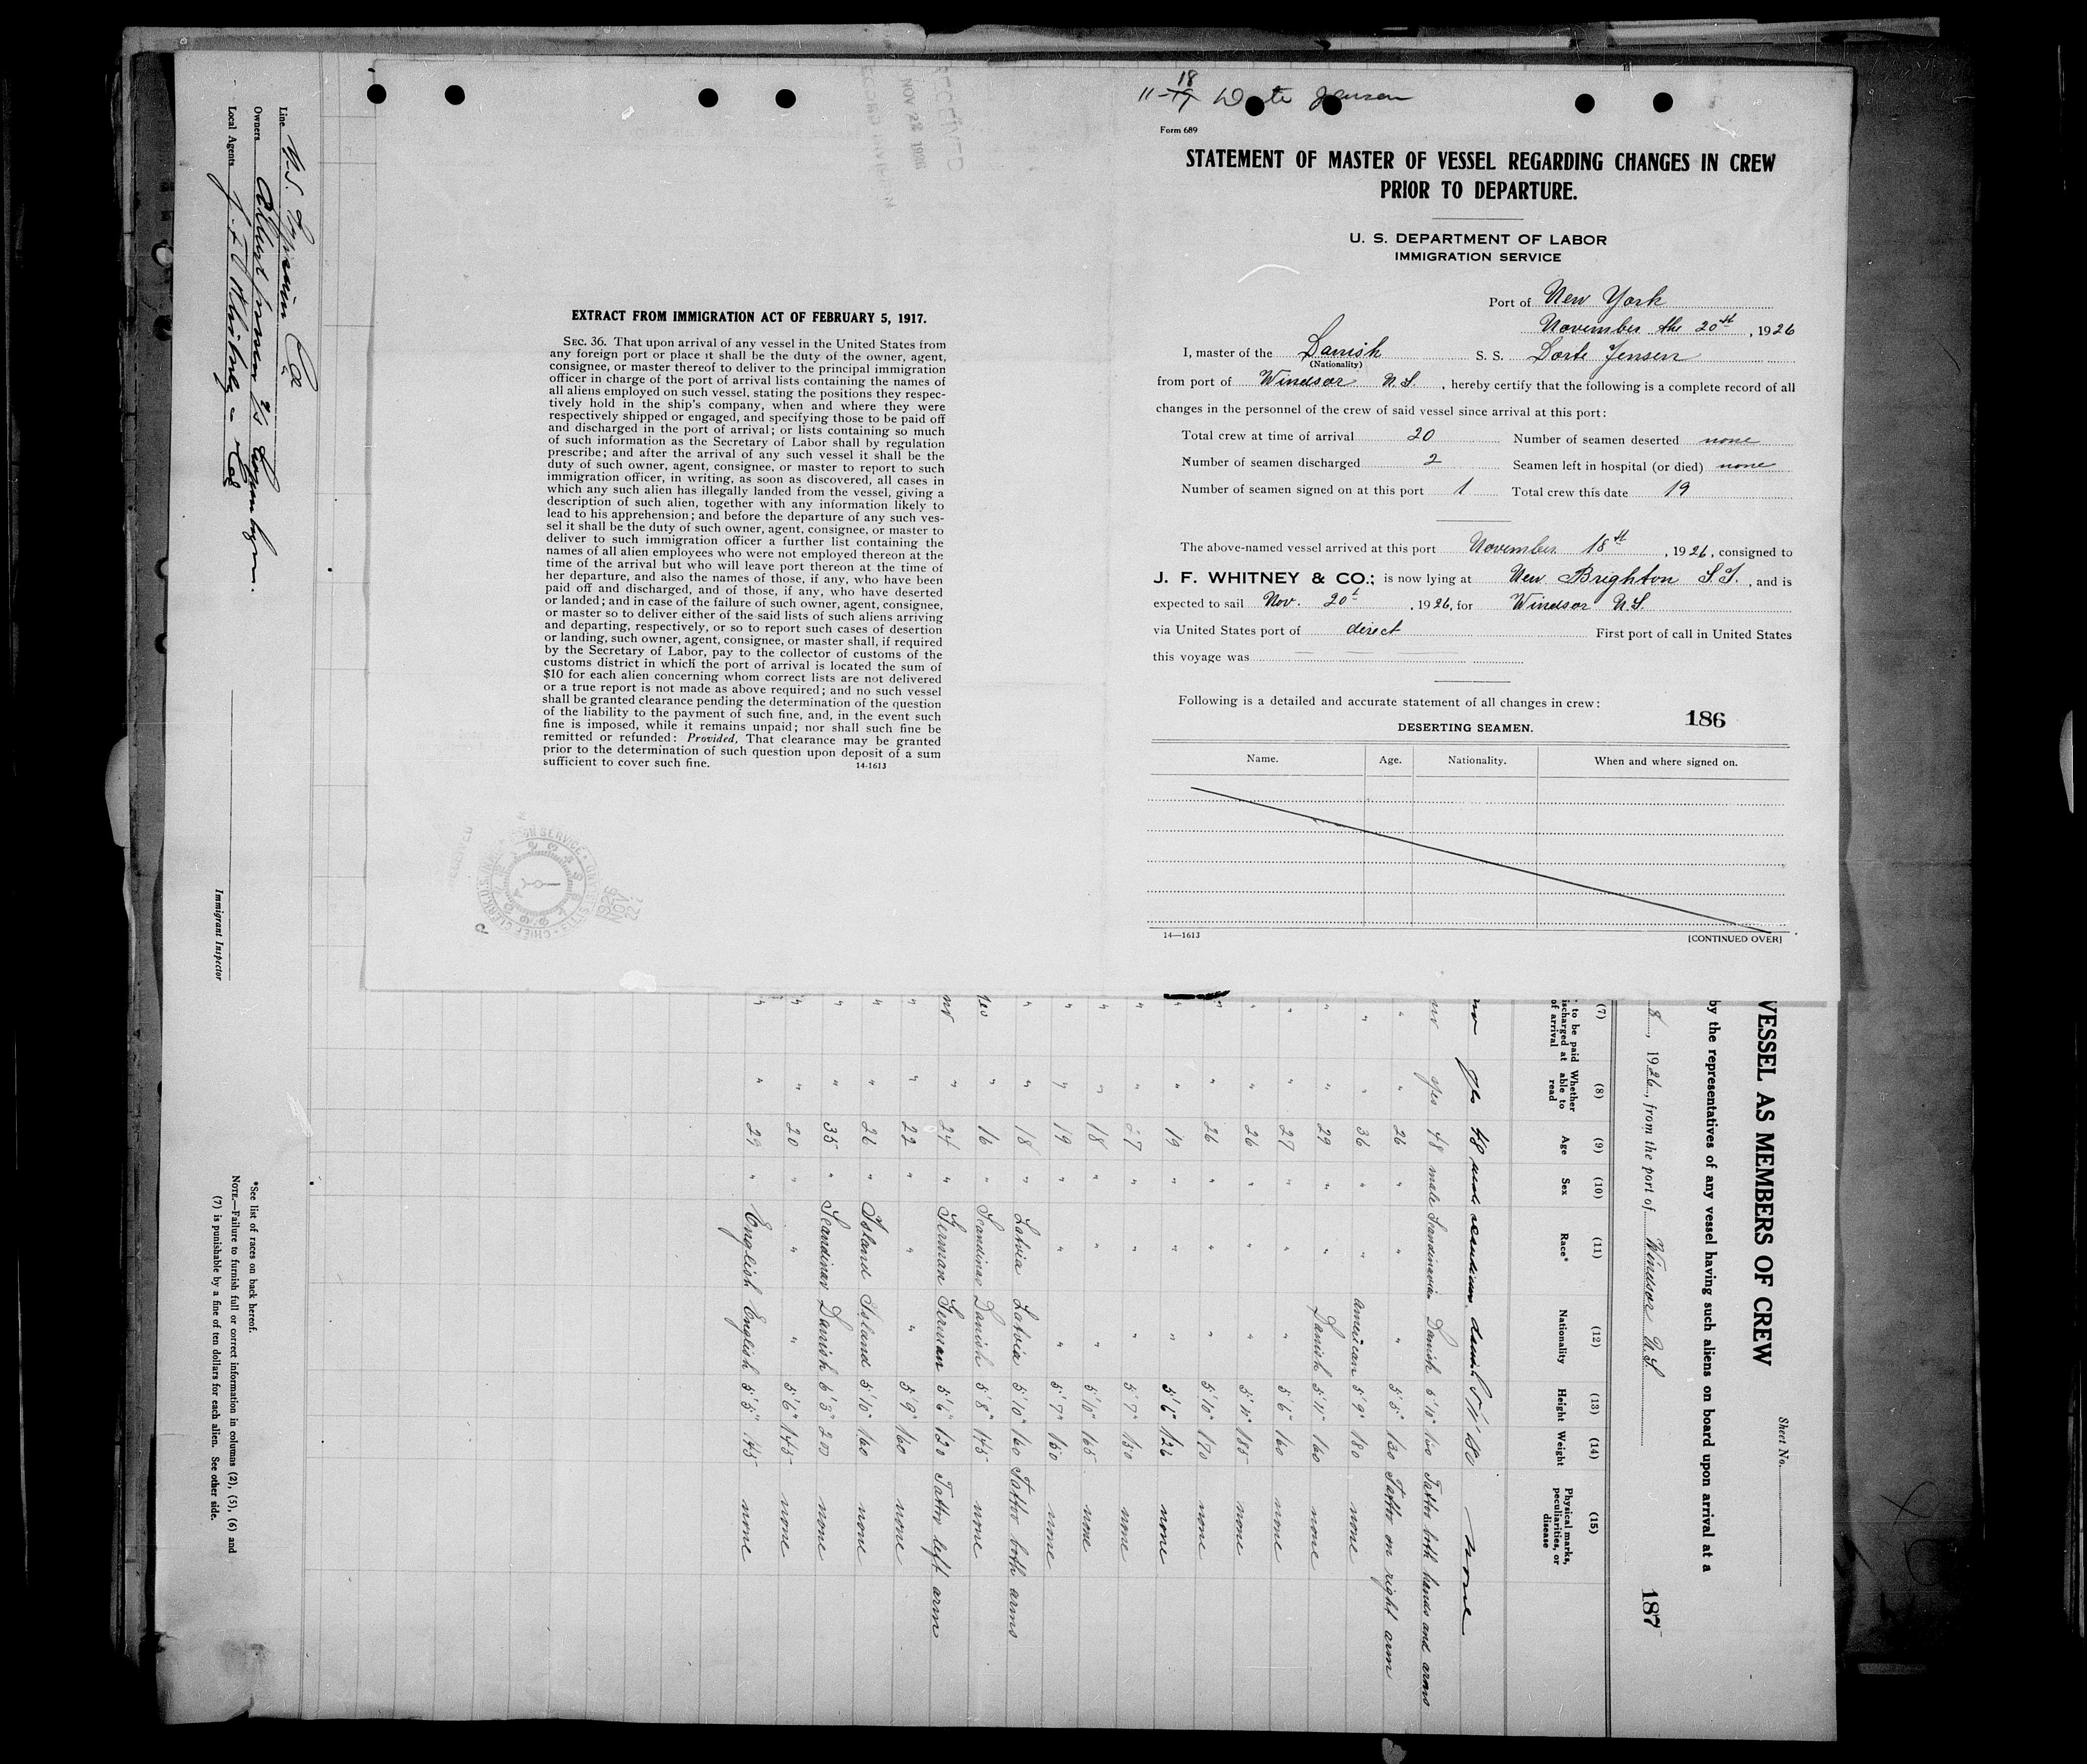 11-18 Dorte Jensen
Form 689
STATEMENT OF MASTER OF VESSEL REGARDING CHANGES IN CREW
PRIOR TO DEPARTURE.
U. S. DEPARTMENT OF LABOR
IMMIGRATION SERVICE
Port of New York
November the 20th, 1926
I, master of the Danish S. S. Dorte Jensen
(Nationality)
from port of Windsor N.S., hereby certify that the following is a complete record of all
changes in the personnel of the crew of said vessel since arrival at this port:
Total crew at time of arrival 20 Number of seamen deserted none
Number of seamen discharged 2 Seamen left in hospital (or died) none
Number of seamen signed on at this port 1 Total crew this date 19
The above-named vessel arrived at this port November 18th, 1926, consigned to
J. F. WHITNEY & CO.; is now lying at New Brighton S.I., and is
expected to sail Nov. 20t, 1926, for Windsor N.S.
via United States port of direct First port of call in United States
this voyage was
Following is a detailed and accurate statement of all changes in crew:
186
DESERTING SEAMEN.
Name. Age. Nationality. When and where signed on.
14—1613
[CONTINUED OVER]
RECEIVED
NOV 22 1926
EXTRACT FROM IMMIGRATION ACT OF FEBRUARY 5, 1917.
SEC. 36. That upon arrival of any vessel in the United States from
any foreign port or place it shall be the duty of the owner, agent,
consignee, or master thereof to deliver to the principal immigration
officer in charge of the port of arrival lists containing the names of
all aliens employed on such vessel, stating the positions they respec-
tively hold in the ship's company, when and where they were
respectively shipped or engaged, and specifying those to be paid off
and discharged in the port of arrival; or lists containing so much
of such information as the Secretary of Labor shall by regulation
prescribe; and after the arrival of any such vessel it shall be the
duty of such owner, agent, consignee, or master to report to such
immigration officer, in writing, as soon as discovered, all cases in
which any such alien has illegally landed from the vessel, giving a
description of such alien, together with any information likely to
lead to his apprehension; and before the departure of any such ves-
sel it shall be the duty of such owner, agent, consignee, or master to
deliver to such immigration officer a further list containing the
names of all alien employees who were not employed thereon at the
time of the arrival but who will leave port thereon at the time of
her departure, and also the names of those, if any, who have been
paid off and discharged, and of those, if any, who have deserted
or landed; and in case of the failure of such owner, agent, consignee,
or master so to deliver either of the said lists of such aliens arriving
and departing, respectively, or so to report such cases of desertion
or landing, such owner, agent, consignee, or master shall, if required
by the Secretary of Labor, pay to the collector of customs of the
customs district in which the port of arrival is located the sum of
$10 for each alien concerning whom correct lists are not delivered
or a true report is not made as above required; and no such vessel
shall be granted clearance pending the determination of the question
of the liability to the payment of such fine, and, in the event such
fine is imposed, while it remains unpaid; nor shall such fine be
remitted or refunded: Provided, That clearance may be granted
prior to the determination of such question upon deposit of a sum
sufficient to cover such fine.
14-1613
1926 NOV 22
Sheet No.
VESSEL AS MEMBERS OF CREW
by the representatives of any vessel having such aliens on board upon arrival at a
8, 1926, from the port of Windsor N.S.
187
(7) (8) (9) (10) (11) (12) (13) (14) (15)
to be paid discharged at of arrival Whether able to read Age Sex Race* Nationality Height Weight Physical marks, peculiarities, or disease
no yes 48 male danish none
no yes 48 male Scandinavian Danish 5'10" 160 Tattoo both hands and arms
" " 26 " " " 5'5" 130 Tattoo on right arm
" " 36 " " american 5'9" 180 none
" " 29 " " Danish 5'11" 160 none
" " 27 " " " 5'6" 160 none
" " 26 " " " 5'11" 185 none
" " 26 " " " 5'10" 170 none
" " 19 " " " 5'6" 126 none
" " 27 " " " 5'7" 150 none
" " 18 " " " 5'10" 165 none
" " 19 " " " 5'7" 150 none
" " 18 " Latvia Latvia 5'10" 160 Tattoo both arms
yes " 16 " Scandinav Danish 5'8" 145 none
no " 24 " German German 5'6" 120 Tattoo left arm
" " 22 " " " 5'9" 160 none
" " 26 " Island Island 5'10" 160 none
" " 35 " Scandinav Danish 6'3" 200 none
" " 20 " " " 5'6" 145 none
" " 29 " English English 5'5" 145 none
Line U.S. Gypsum Co
Owners Albert Jensen
Local Agents J. F. Whitney & Co
Immigrant Inspector
*See list of races on back hereof.
NOTE.—Failure to furnish full or correct information in columns (2), (5), (6) and
(7) is punishable by a fine of ten dollars for each alien. See other side.